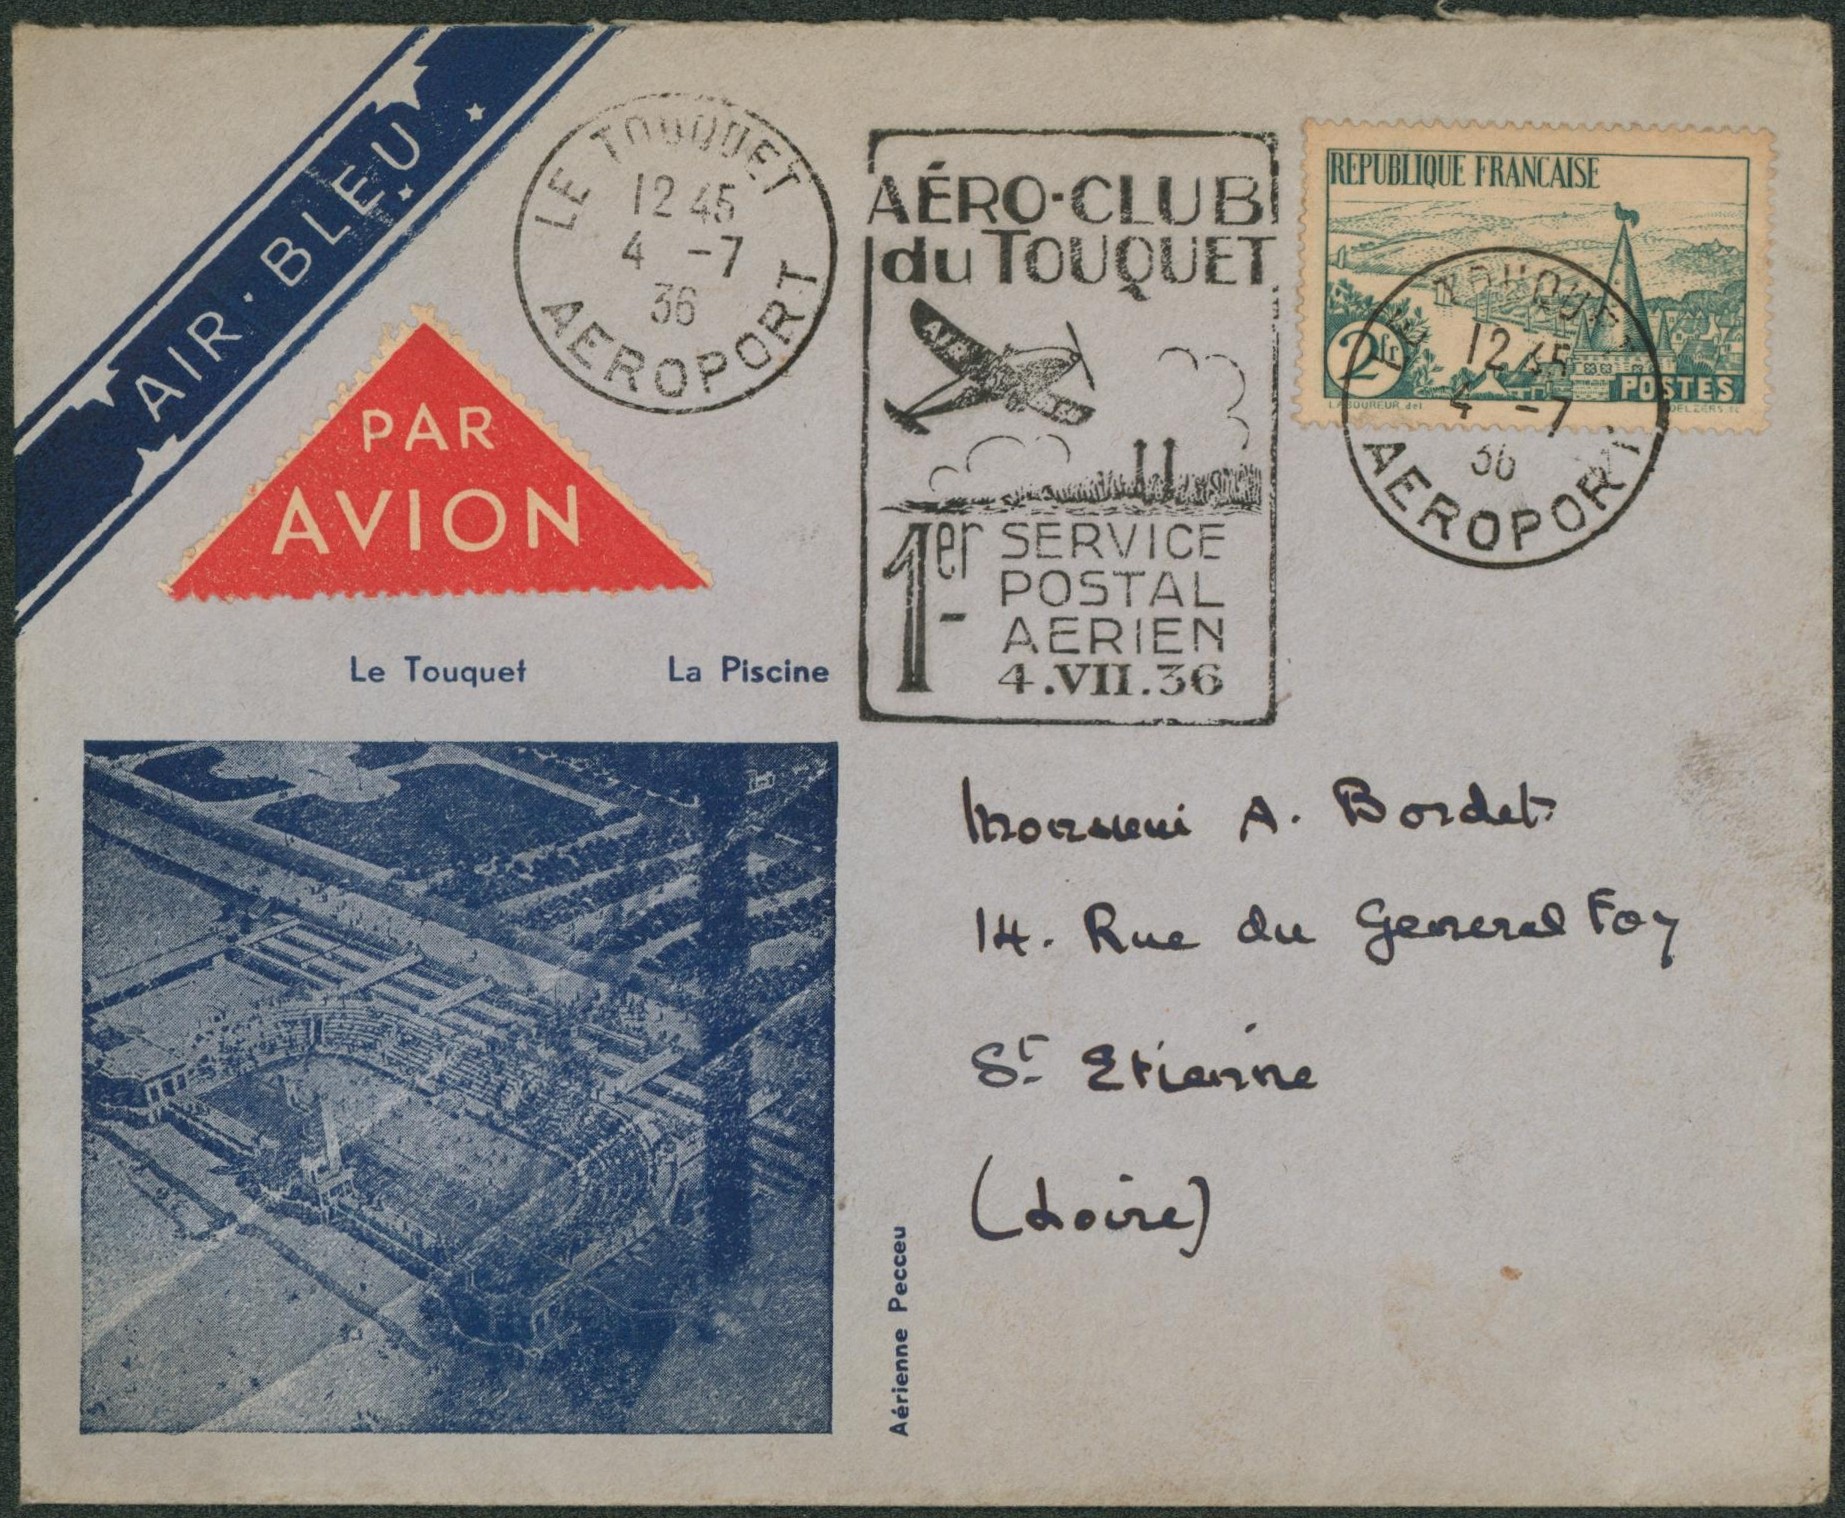 AIR·BLEU
PAR
AVION
LE TOUQUET
12 45
4 -7
36
AEROPORT
AÉRO-CLUB
du TOUQUET
1er SERVICE
POSTAL
AERIEN
4.VII.36
REPUBLIQUE FRANCAISE
2fr
POSTES
LABOUREUR.del
LE TOUQUET
12 45
4 -7
36
AEROPORT
Le Touquet La Piscine
Aérienne Pecceu
Monsieur A. Bordet
14. Rue du General Foy
St Etienne
(Loire)